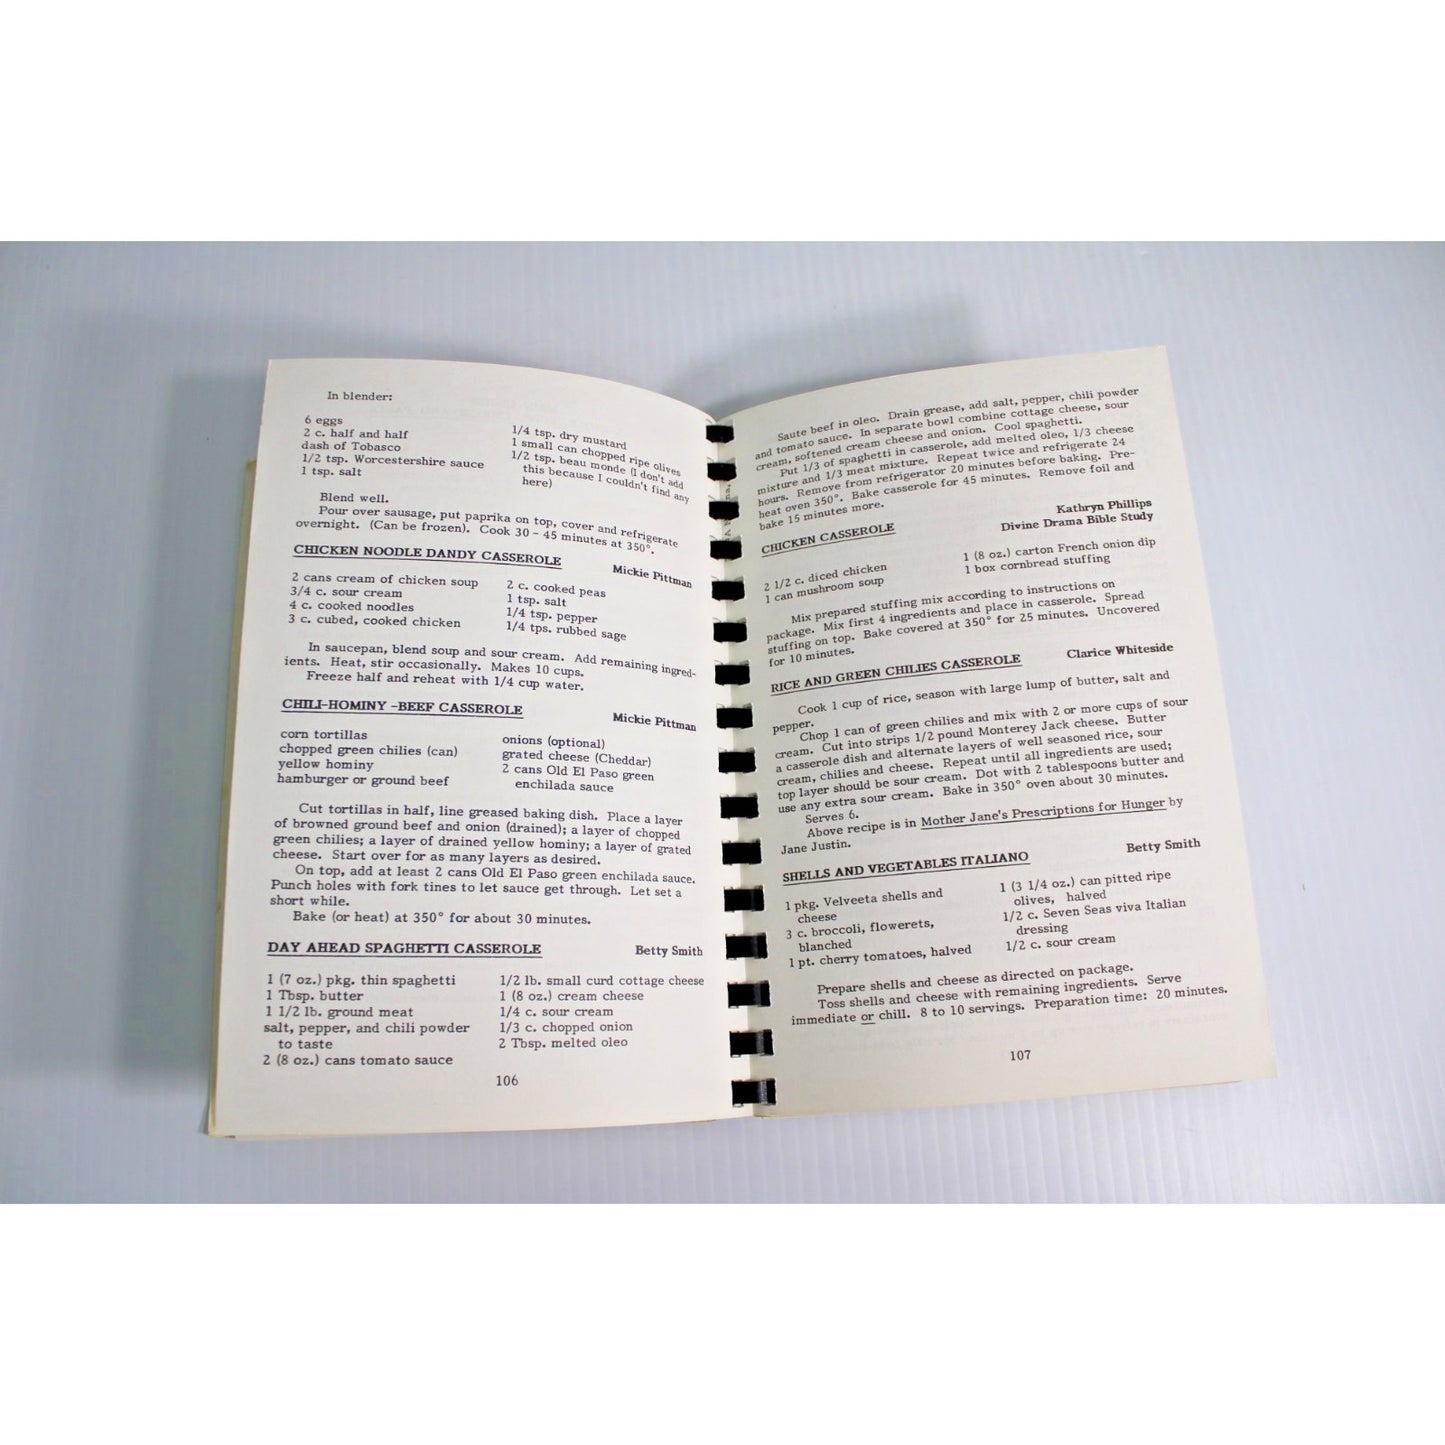 In blender:
6 eggs
2 c. half and half
dash of Tobasco
1/2 tsp. Worcestershire sauce
1 tsp. salt
1/4 tsp. dry mustard
1 small can chopped ripe olives
1/2 tsp. beau monde (I don't add
this because I couldn't find any
here)
Blend well.
Pour over sausage, put paprika on top, cover and refrigerate
overnight. (Can be frozen). Cook 30 - 45 minutes at 350°.
CHICKEN NOODLE DANDY CASSEROLE
Mickie Pittman
2 cans cream of chicken soup
3/4 c. sour cream
4 c. cooked noodles
3 c. cubed, cooked chicken
2 c. cooked peas
1 tsp. salt
1/4 tsp. pepper
1/4 tps. rubbed sage
In saucepan, blend soup and sour cream. Add remaining ingred-
ients. Heat, stir occasionally. Makes 10 cups.
Freeze half and reheat with 1/4 cup water.
CHILI-HOMINY -BEEF CASSEROLE
Mickie Pittman
corn tortillas
chopped green chilies (can)
yellow hominy
hamburger or ground beef
onions (optional)
grated cheese (Cheddar)
2 cans Old El Paso green
enchilada sauce
Cut tortillas in half, line greased baking dish. Place a layer
of browned ground beef and onion (drained); a layer of chopped
green chilies; a layer of drained yellow hominy; a layer of grated
cheese. Start over for as many layers as desired.
On top, add at least 2 cans Old El Paso green enchilada sauce.
Punch holes with fork tines to let sauce get through. Let set a
short while.
Bake (or heat) at 350° for about 30 minutes.
DAY AHEAD SPAGHETTI CASSEROLE
Betty Smith
1 (7 oz.) pkg. thin spaghetti
1 Tbsp. butter
1 1/2 lb. ground meat
salt, pepper, and chili powder
to taste
2 (8 oz.) cans tomato sauce
1/2 lb. small curd cottage cheese
1 (8 oz.) cream cheese
1/4 c. sour cream
1/3 c. chopped onion
2 Tbsp. melted oleo
106
Saute beef in oleo. Drain grease, add salt, pepper, chili powder
and tomato sauce. In separate bowl combine cottage cheese, sour
cream, softened cream cheese and onion. Cool spaghetti.
Put 1/3 of spaghetti in casserole, add melted oleo, 1/3 cheese
mixture and 1/3 meat mixture. Repeat twice and refrigerate 24
hours. Remove from refrigerator 20 minutes before baking. Pre-
heat oven 350°. Bake casserole for 45 minutes. Remove foil and
bake 15 minutes more.
Kathryn Phillips
CHICKEN CASSEROLE
Divine Drama Bible Study
2 1/2 c. diced chicken
1 can mushroom soup
1 (8 oz.) carton French onion dip
1 box cornbread stuffing
Mix prepared stuffing mix according to instructions on
package. Mix first 4 ingredients and place in casserole. Spread
stuffing on top. Bake covered at 350° for 25 minutes. Uncovered
for 10 minutes.
RICE AND GREEN CHILIES CASSEROLE
Clarice Whiteside
Cook 1 cup of rice, season with large lump of butter, salt and
pepper.
Chop 1 can of green chilies and mix with 2 or more cups of sour
cream. Cut into strips 1/2 pound Monterey Jack cheese. Butter
a casserole dish and alternate layers of well seasoned rice, sour
cream, chilies and cheese. Repeat until all ingredients are used;
top layer should be sour cream. Dot with 2 tablespoons butter and
use any extra sour cream. Bake in 350° oven about 30 minutes.
Serves 6.
Above recipe is in Mother Jane's Prescriptions for Hunger by
Jane Justin.
SHELLS AND VEGETABLES ITALIANO
Betty Smith
1 pkg. Velveeta shells and
cheese
3 c. broccoli, flowerets,
blanched
1 pt. cherry tomatoes, halved
1 (3 1/4 oz.) can pitted ripe
olives, halved
1/2 c. Seven Seas viva Italian
dressing
1/2 c. sour cream
Prepare shells and cheese as directed on package.
Toss shells and cheese with remaining ingredients. Serve
immediate or chill. 8 to 10 servings. Preparation time: 20 minutes.
107